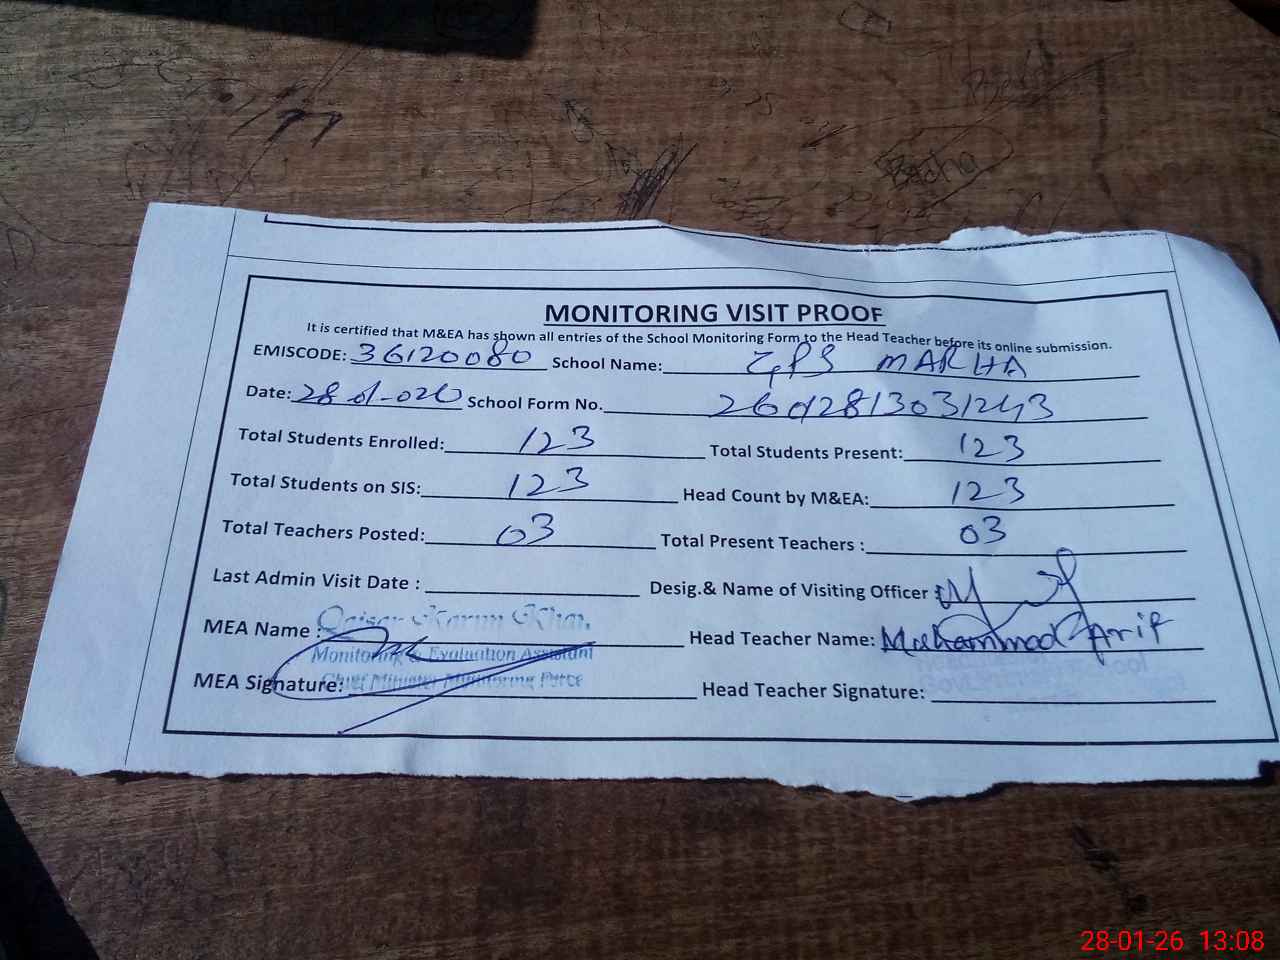 Bacha
MONITORING VISIT PROOF
It is certified that M&EA has shown all entries of the School Monitoring Form to the Head Teacher before its online submission.
EMISCODE: 36120080 School Name: GPS MARHA
Date: 28-01-026 School Form No. 26012813031243
Total Students Enrolled: 123 Total Students Present: 123
Total Students on SIS: 123 Head Count by M&EA: 123
Total Teachers Posted: 03 Total Present Teachers : 03
Last Admin Visit Date : Desig.& Name of Visiting Officer :
MEA Name : Qaisar Karim Khan Head Teacher Name: Muhammad Arif
Monitoring & Evaluation Assistant
MEA Signature: Chief Minister Monitoring Force Head Teacher Signature:
28-01-26 13:08